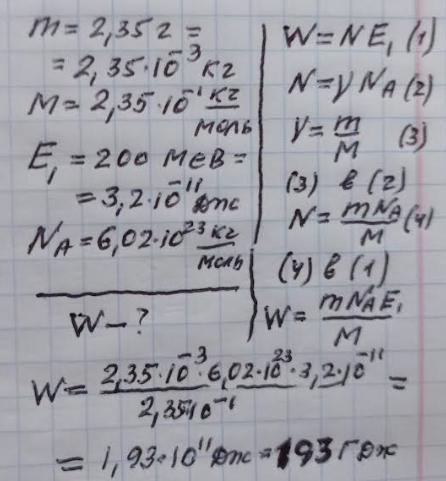 m = 2,35 г =
= 2,35·10⁻³ кг
M = 2,35·10⁻¹ кг/моль
E₁ = 200 МэВ =
= 3,2·10⁻¹¹ Дж
N_A = 6,02·10²³ кг/моль
W – ?
W = N E₁ (1)
N = ν N_A (2)
ν = m/M (3)
(3) в (2)
N = mN_A/M (4)
(4) в (1)
W = mN_AE₁/M
W = 2,35·10⁻³·6,02·10²³·3,2·10⁻¹¹/2,35·10⁻¹ =
= 1,93·10¹¹ Дж = 193 ГДж